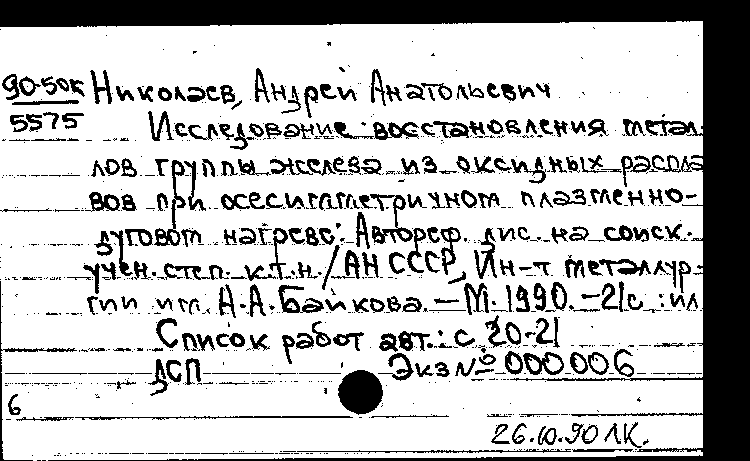 90-50к Николаев, Андрей Анатольевич
5575 Исследование восстановления метал-
лов группы железа из оксидных распла
вов при осесимметричном плазменно-
дуговом нагреве: Автореф. дис. на соиск.
учен. степ. к.т.н. / АН СССР, Ин-т металлур-
гии им. А.А. Байкова. — М. 1990. — 21с : ил
Список работ авт.: с 20-21
ДСП Экз № 000006
6
26.10.90 ЛК.